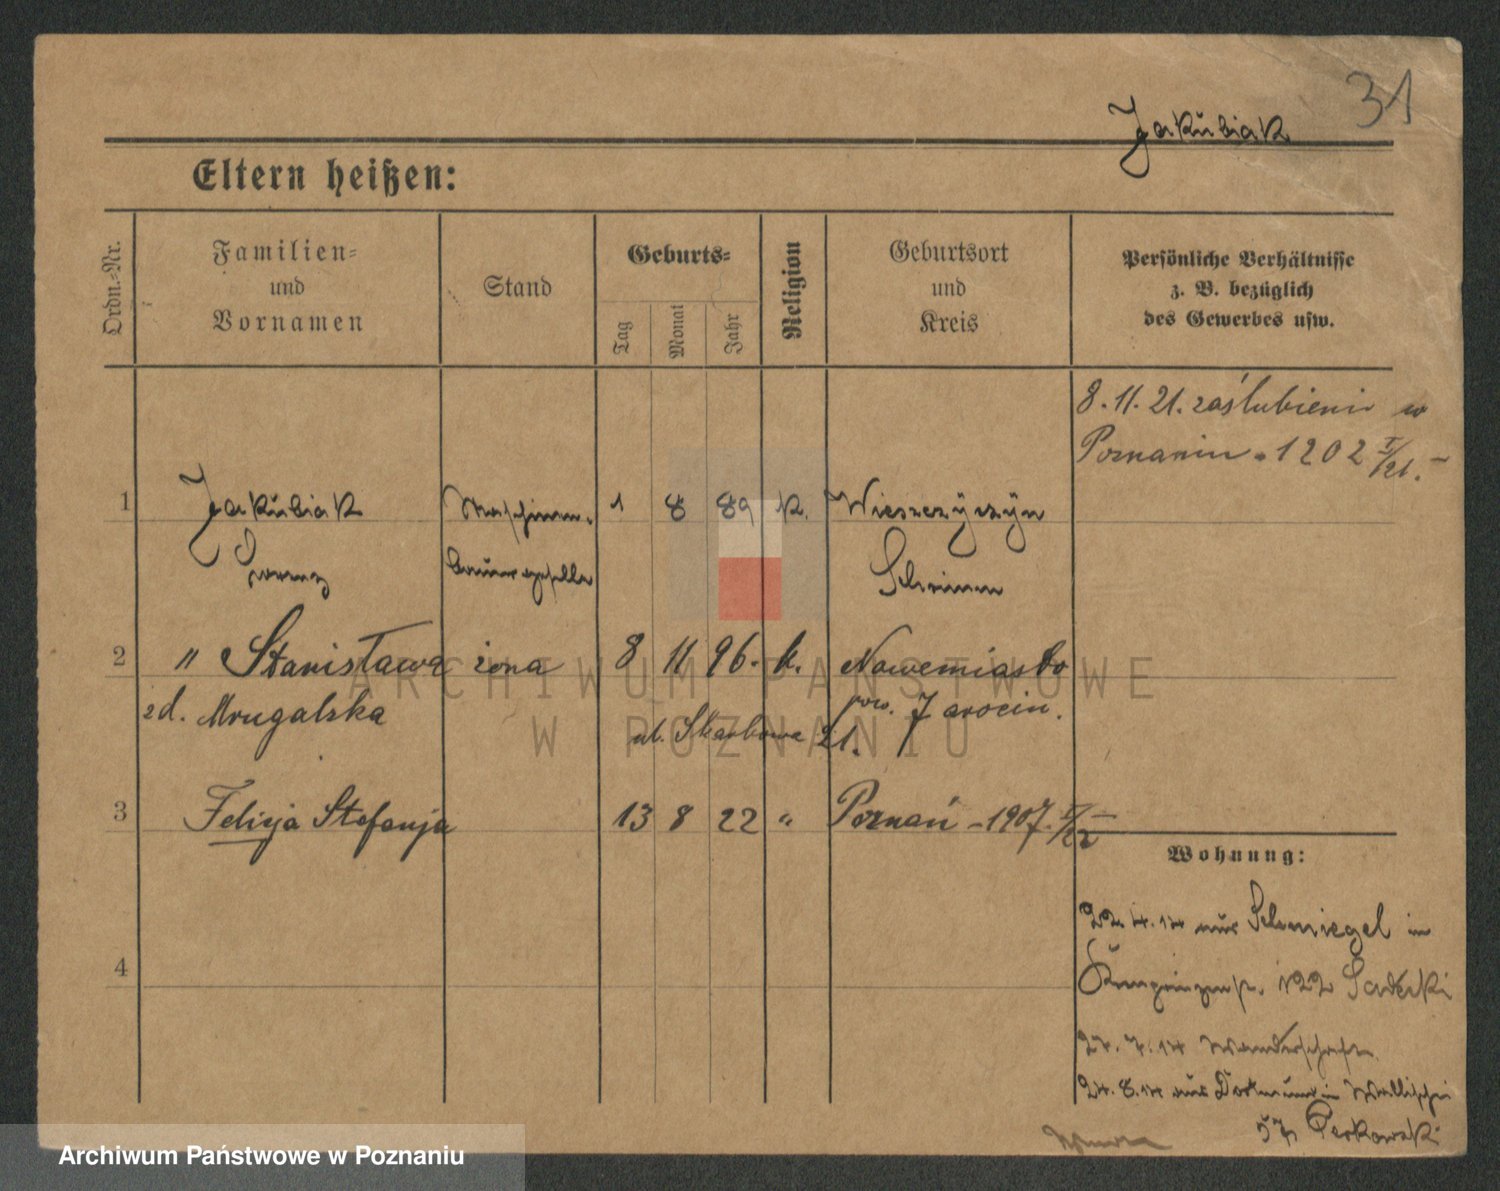 31
Jakubiak
Eltern heißen:
Ordn.-Nr.
Familien-
und
Vornamen
Stand
Geburts-
Tag
Monat
Jahr
Religion
Geburtsort
und
Kreis
Persönliche Verhältnisse
z. B. bezüglich
des Gewerbes usw.
8. 11. 21. zaślubieni w
Poznaniu - 1202 I/21. -
1 Jakubiak 1 8 89 k. Wieszczyczyn
Lorenz Schrimm
2 " Stanisława żona 8 11 96. k. Nowemiasto
zd. Mrugalska pow. Jarocin.
ul. Skarbowa 21.
3 Felicja Stefanja 13 8 22 " Poznań - 1907
4
Wohnung:
22.4.14 aus Schmiegel in
Kronprinzenstr. 122
27.7.14 Wanderschaft
24.8.14 aus Dortmund in Wallischei
Perkowski
ARCHIWUM PAŃSTWOWE
W POZNANIU
Archiwum Państwowe w Poznaniu